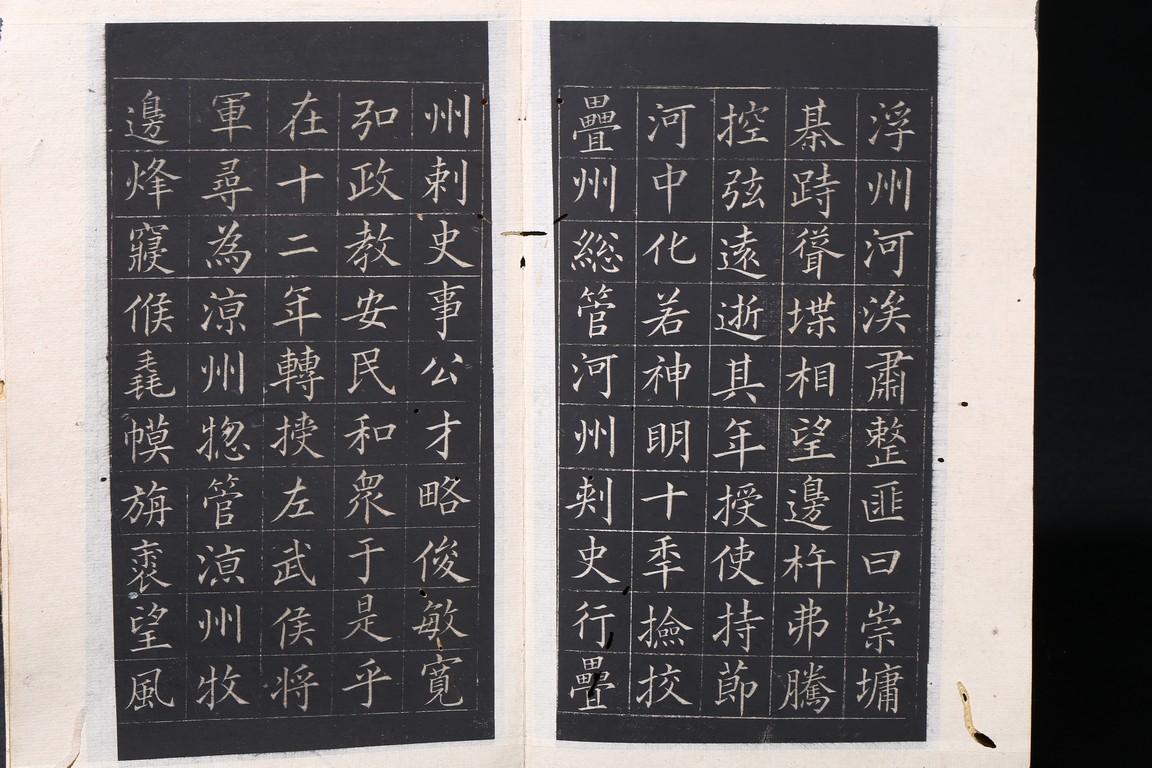 浮州河涘肅整匪曰崇墉
棊跱聳堞相望邊杵弗騰
控弦遠逝其年授使持節
河中化若神眀十秊撿挍
疊州総管河州刾史行疊
州刾史事公才略俊敏寬
弘政教安民和衆于是乎
在十二年轉授左武侯将
軍尋為涼州揔管涼州牧
邊烽寢候毳幙旃裘望風